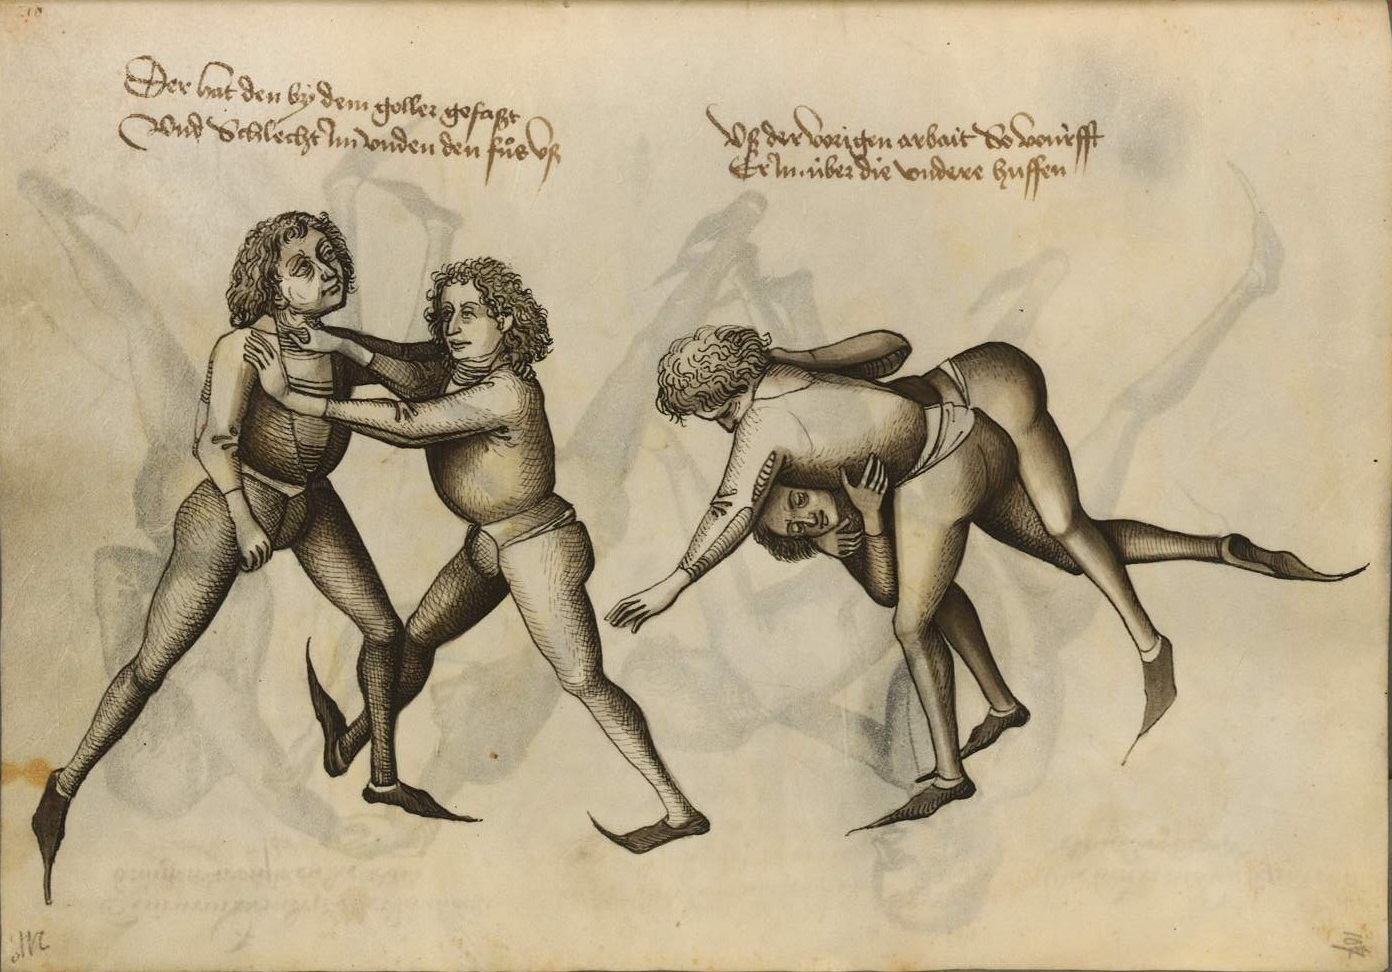 Der hat den by dem goller gefaßt
Vnd Schlecht im vnden den fůs vß
Vß der vorigen arbait So würfft
Er In über die vndere huffen